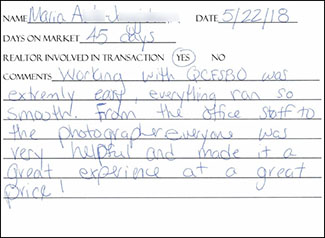 NAME Maria A DATE 5/22/18
DAYS ON MARKET 45 days
REALTOR INVOLVED IN TRANSACTION YES NO
COMMENTS Working with QCFSBO was
extremly easy, everything ran so
smooth. From the office staff to
the photographer everyone was
very helpful and made it a
great experience at a great
price!